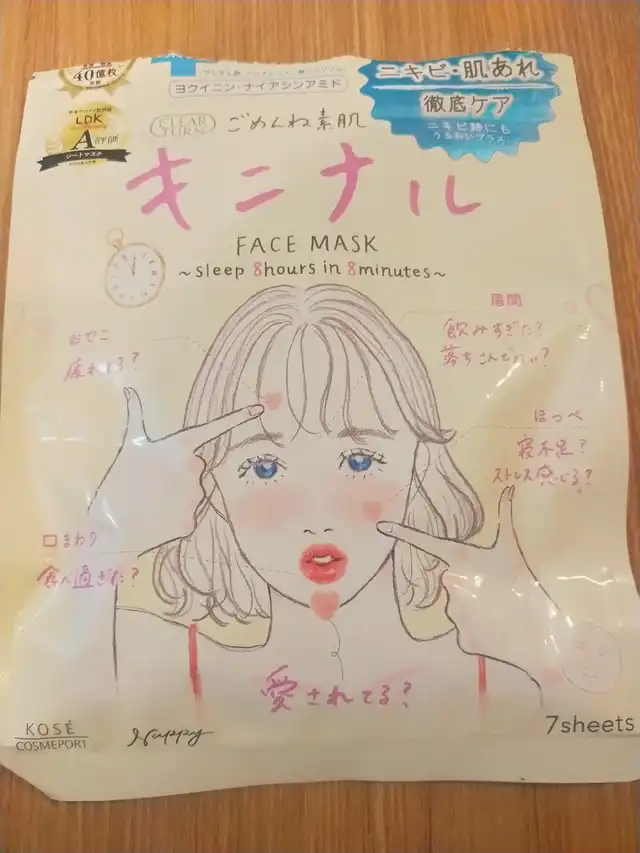 40億枚
LDK
A評価
シートマスク
ヨクイニン・ナイアシンアミド
CLEAR TURN
ごめんね素肌
ニキビ・肌あれ
徹底ケア
ニキビ跡にも
うるおいプラス
キニナル
FACE MASK
~sleep 8hours in 8minutes~
眉間
飲みすぎた?
落ちこんでない?
おでこ
疲れてる?
ほっぺ
寝不足?
ストレス感じる?
口まわり
食べ過ぎた?
愛されてる?
KOSÉ
COSMEPORT
Nuppy
7sheets